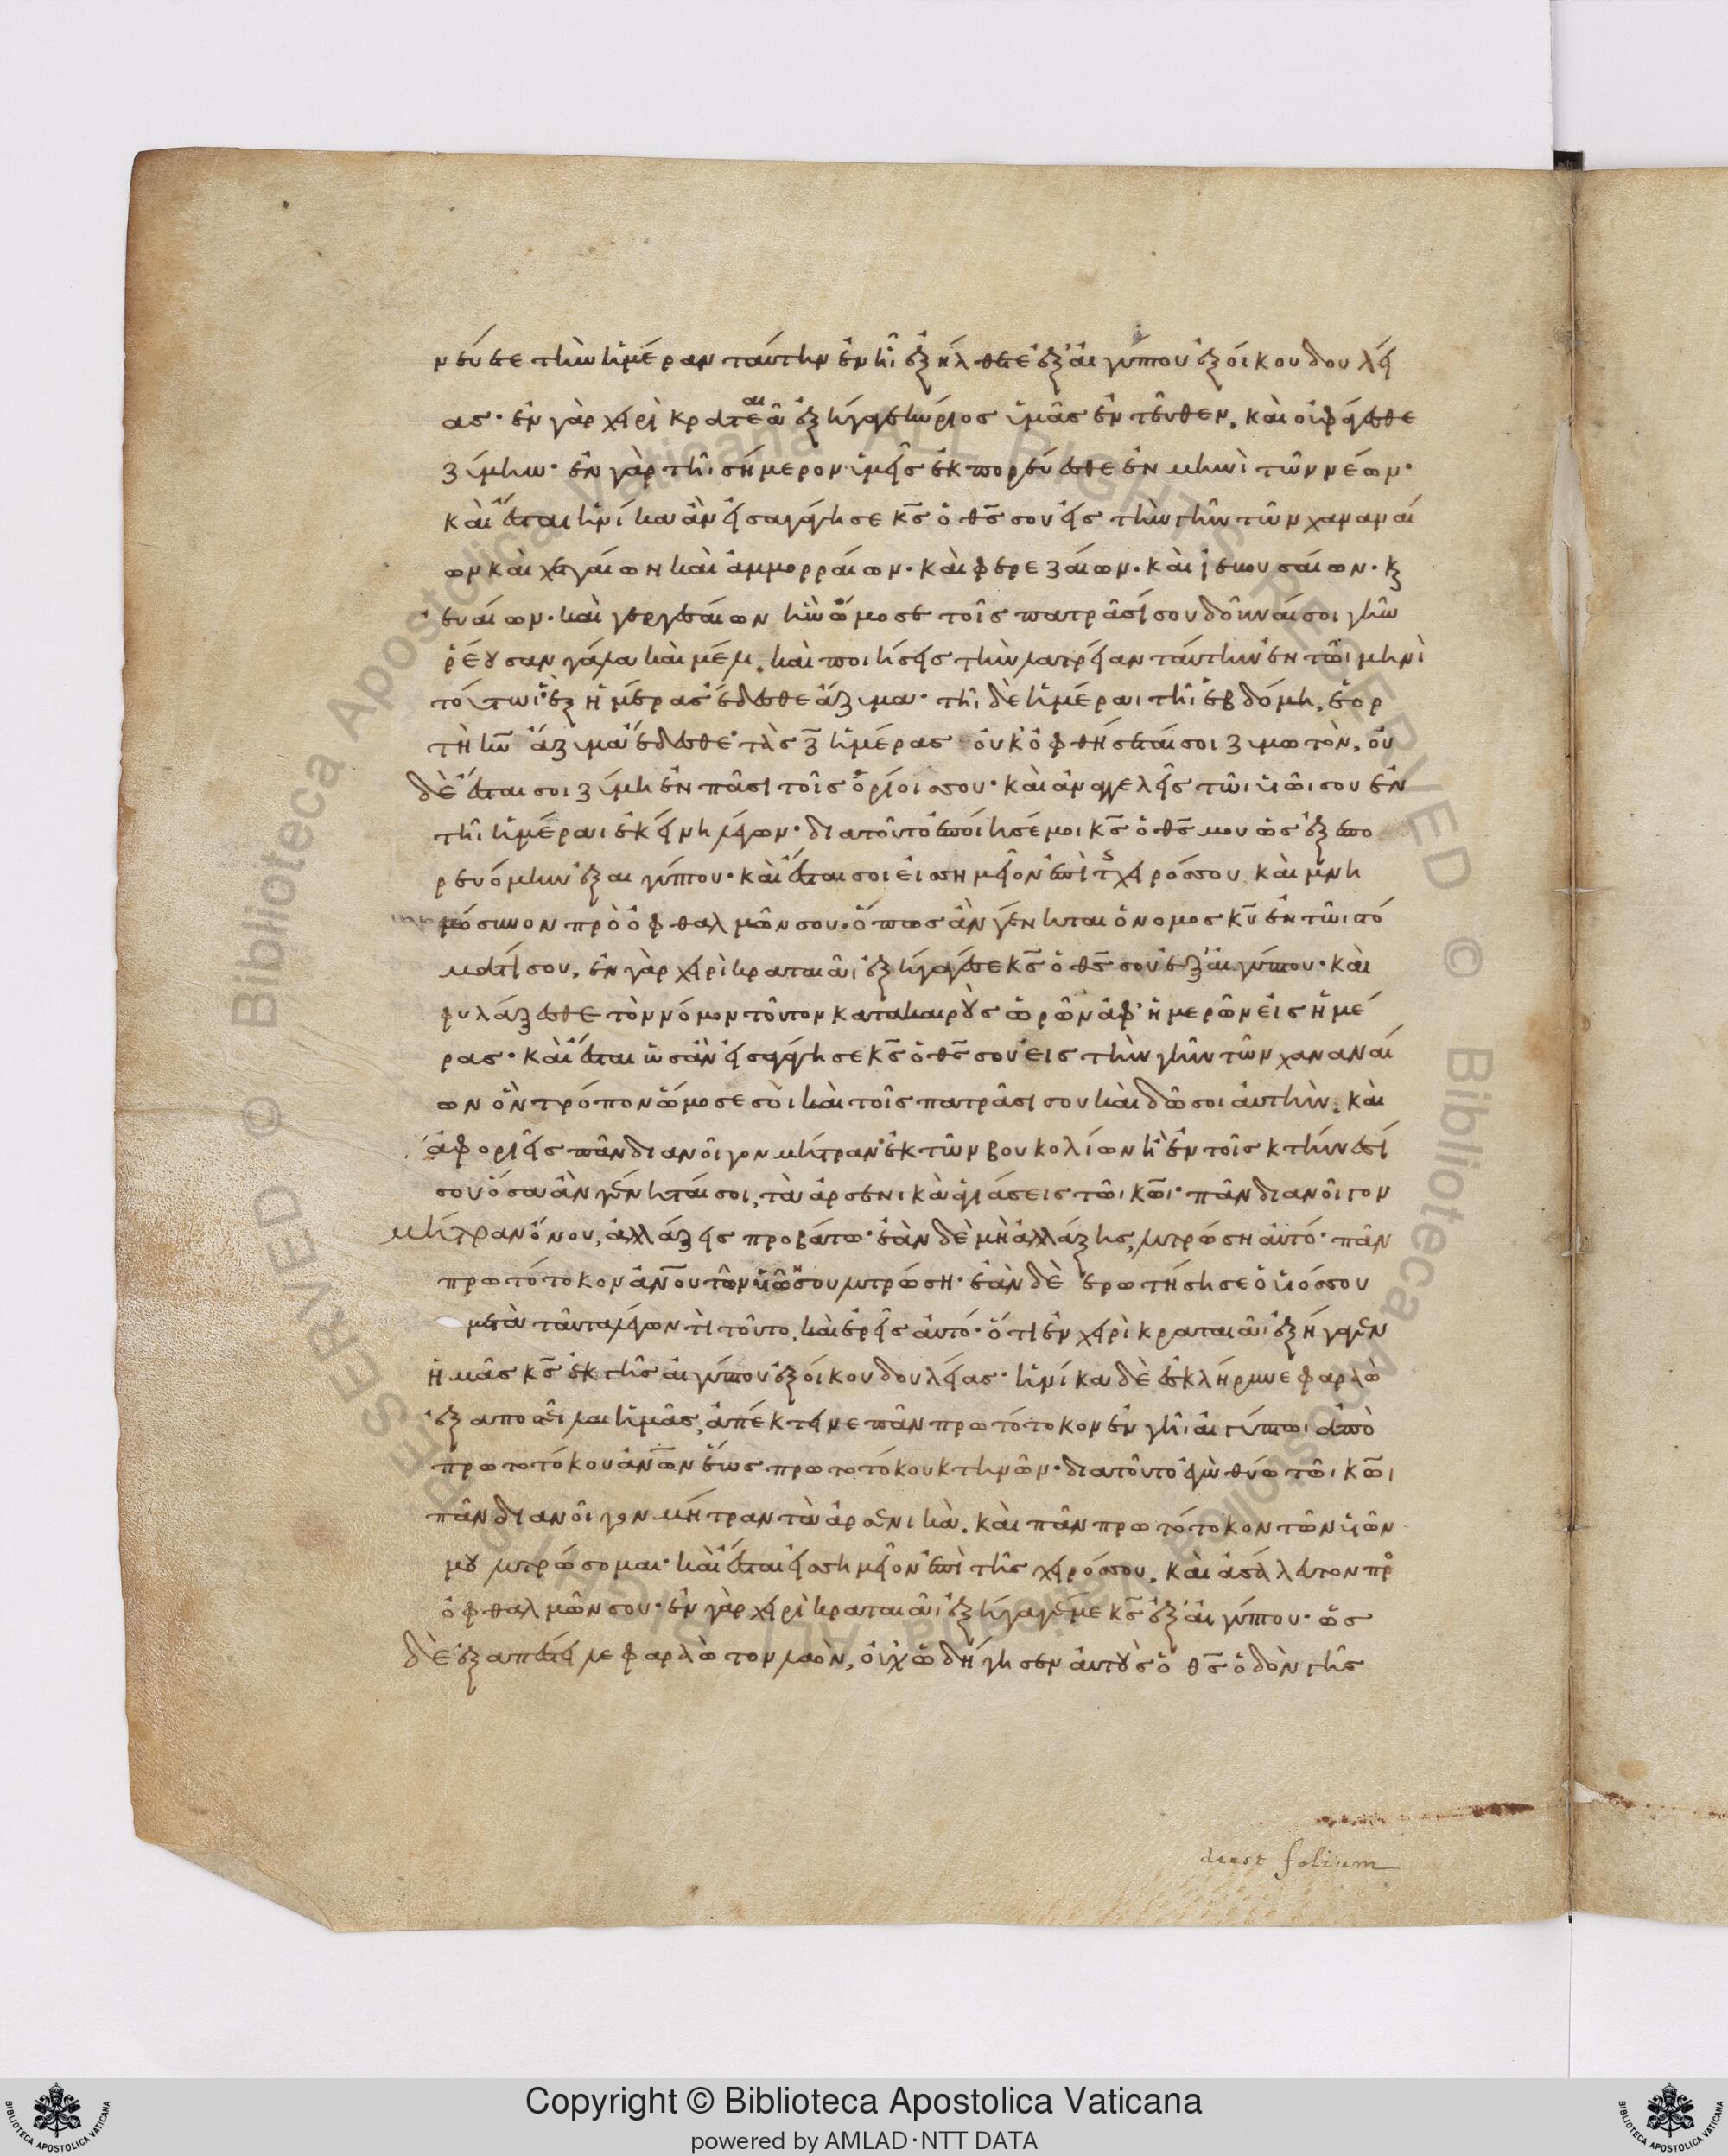 νεύετε τὴν ἡμέραν ταύτην ἐν ἧι ἐξήλθετε ἐξ αἰγύπτου ἐξ οἴκου δουλεί
ας· ἐν γὰρ χειρὶ κραταιᾶ ἐξήγαγεν κύριος ὑμᾶς ἐντεῦθεν. καὶ οὐ βρωθήσεται
ζύμην· ἐν γὰρ τῆι σήμερον ὑμεῖς ἐκπορεύεσθε ἐν μηνὶ τῶν νέων·
καὶ ἔσται ἡνίκα ἂν εἰσαγάγη σε κς ὁ θς σου εἰς τὴν γῆν τῶν χαναναί
ων καὶ χετταίων καὶ ἀμμορραίων· καὶ φερεζαίων· καὶ ιεβουσαίων· κ
ευαίων· καὶ γεργεσαίων ἣν ὤμοσε τοῖς πατράσί σου δοῦναί σοι γῆν
ῥέουσαν γάλα καὶ μέλι. καὶ ποιήσεις τὴν λατρείαν ταύτην ἐν τῶι μηνὶ
τούτωι· ἓξ ἡμέρας ἔδεσθε ἄζυμα· τῆι δὲ ἡμέραι τῆι ἑβδόμη, ἑορ
τὴ κυ ἄζυμα ἔδεσθε τὰς ζ ἡμέρας οὐκ ὀφθήσεταί σοι ζυμωτὸν, οὐ
δὲ ἔσται σοι ζύμη ἐν πᾶσι τοῖς ὁρίοις σου· καὶ ἀναγγελεῖς τῶι υἱῶι σου ἐν
τῆι ἡμέραι ἐκείνη λέγων· διατοῦτο ἐποίησέ μοι κς ὁ θς μου ὡς ἐξεπο
ρευόμην ἐξ αιγύπτου· καὶ ἔσται σοι εἰσημεῖον ἐπὶ τς χειρός σου καὶ μνη
μόσυνον πρὸ ὀφθαλμῶν σου· ὅπως ἂν γένηται ὁ νομος κυ ἐν τῶι στό
ματί σου. ἐν γὰρ χειρὶ κραταιᾶι ἐξήγαγέ σε κς ὁ θς σου ἐξ αἰγύπτου· καὶ
φυλάξεσθε τὸν νόμον τοῦτον κατα καιροὺς ὡρῶν ἀφ' ἡμερῶν εἰς ἡμέ
ρας· καὶ ἔσται ὡς ἂν εἰσαγάγη σε κς ὁ θς σου εἰς τὴν γῆν τῶν χαναναί
ων ὃν τρόπον ὤμοσε σοὶ καὶ τοῖς πατράσι σου καὶ δώσοι αὐτήν. καὶ
ἀφοριεῖς πᾶν διανοῖγον μήτραν ἐκ τῶν βουκολίων ἢ ἐν τοῖς κτήνεσί
σου ὅσα ἂν γένηταί σοι, τὰ ἀρσενικὰ ἁγιάσεις τῶι κωι· πᾶν διανοῖγον
μήτραν ὄνου, ἀλλάξεις προβάτω· ἐὰν δὲ μὴ ἀλλάξης, λυτρώση αὐτό· πᾶν
πρωτότοκον ἀνου τῶν υἱῶν σου λυτρώση· ἐὰν δὲ ἐρωτήση σε ὁ υἱός σου
μετὰ ταῦτα λέγων τὶ τοῦτο, καὶ ἐρεῖς αὐτό· ὅτι ἐν χειρὶ κραταιᾶι ἐξήγαγεν
ἡμᾶς κς ἐκ τῆς αἰγύπτου ἐξ οἴκου δουλείας· ἡνίκα δὲ ἐσκλήρυνε φαραὼ
ἐξαποστεῖλαι ἡμᾶς, ἀπέκτεινε πᾶν πρωτότοκον ἐν γῆι αἰγύπτωι ἀπὸ
πρωτοτόκου ἀνων ἕως πρωτοτόκου κτηνῶν· διατοῦτο ἐγὼ θύω τῶι κωι
πᾶν διανοῖγον μήτραν τὰ ἀρσενικὰ. καὶ πᾶν πρωτότοκον τῶν υἱῶν
μου λυτρώσομαι· καὶ ἔσται εἰσημεῖον ἐπὶ τῆς χειρός σου. καὶ ἀσάλευτον πρὸ
ὀφθαλμῶν σου· ἐν γὰρ χειρὶ κραταιᾶι ἐξήγαγέ με κς ἐξ αἰγύπτου· ὡς
δὲ ἐξαπέστειλε φαραὼ τον λαὸν, οὐχ ὡδήγησεν αὐτοὺς ὁ θς ὁδὸν γῆς
deest folium
Copyright © Biblioteca Apostolica Vaticana
powered by AMLAD·NTT DATA